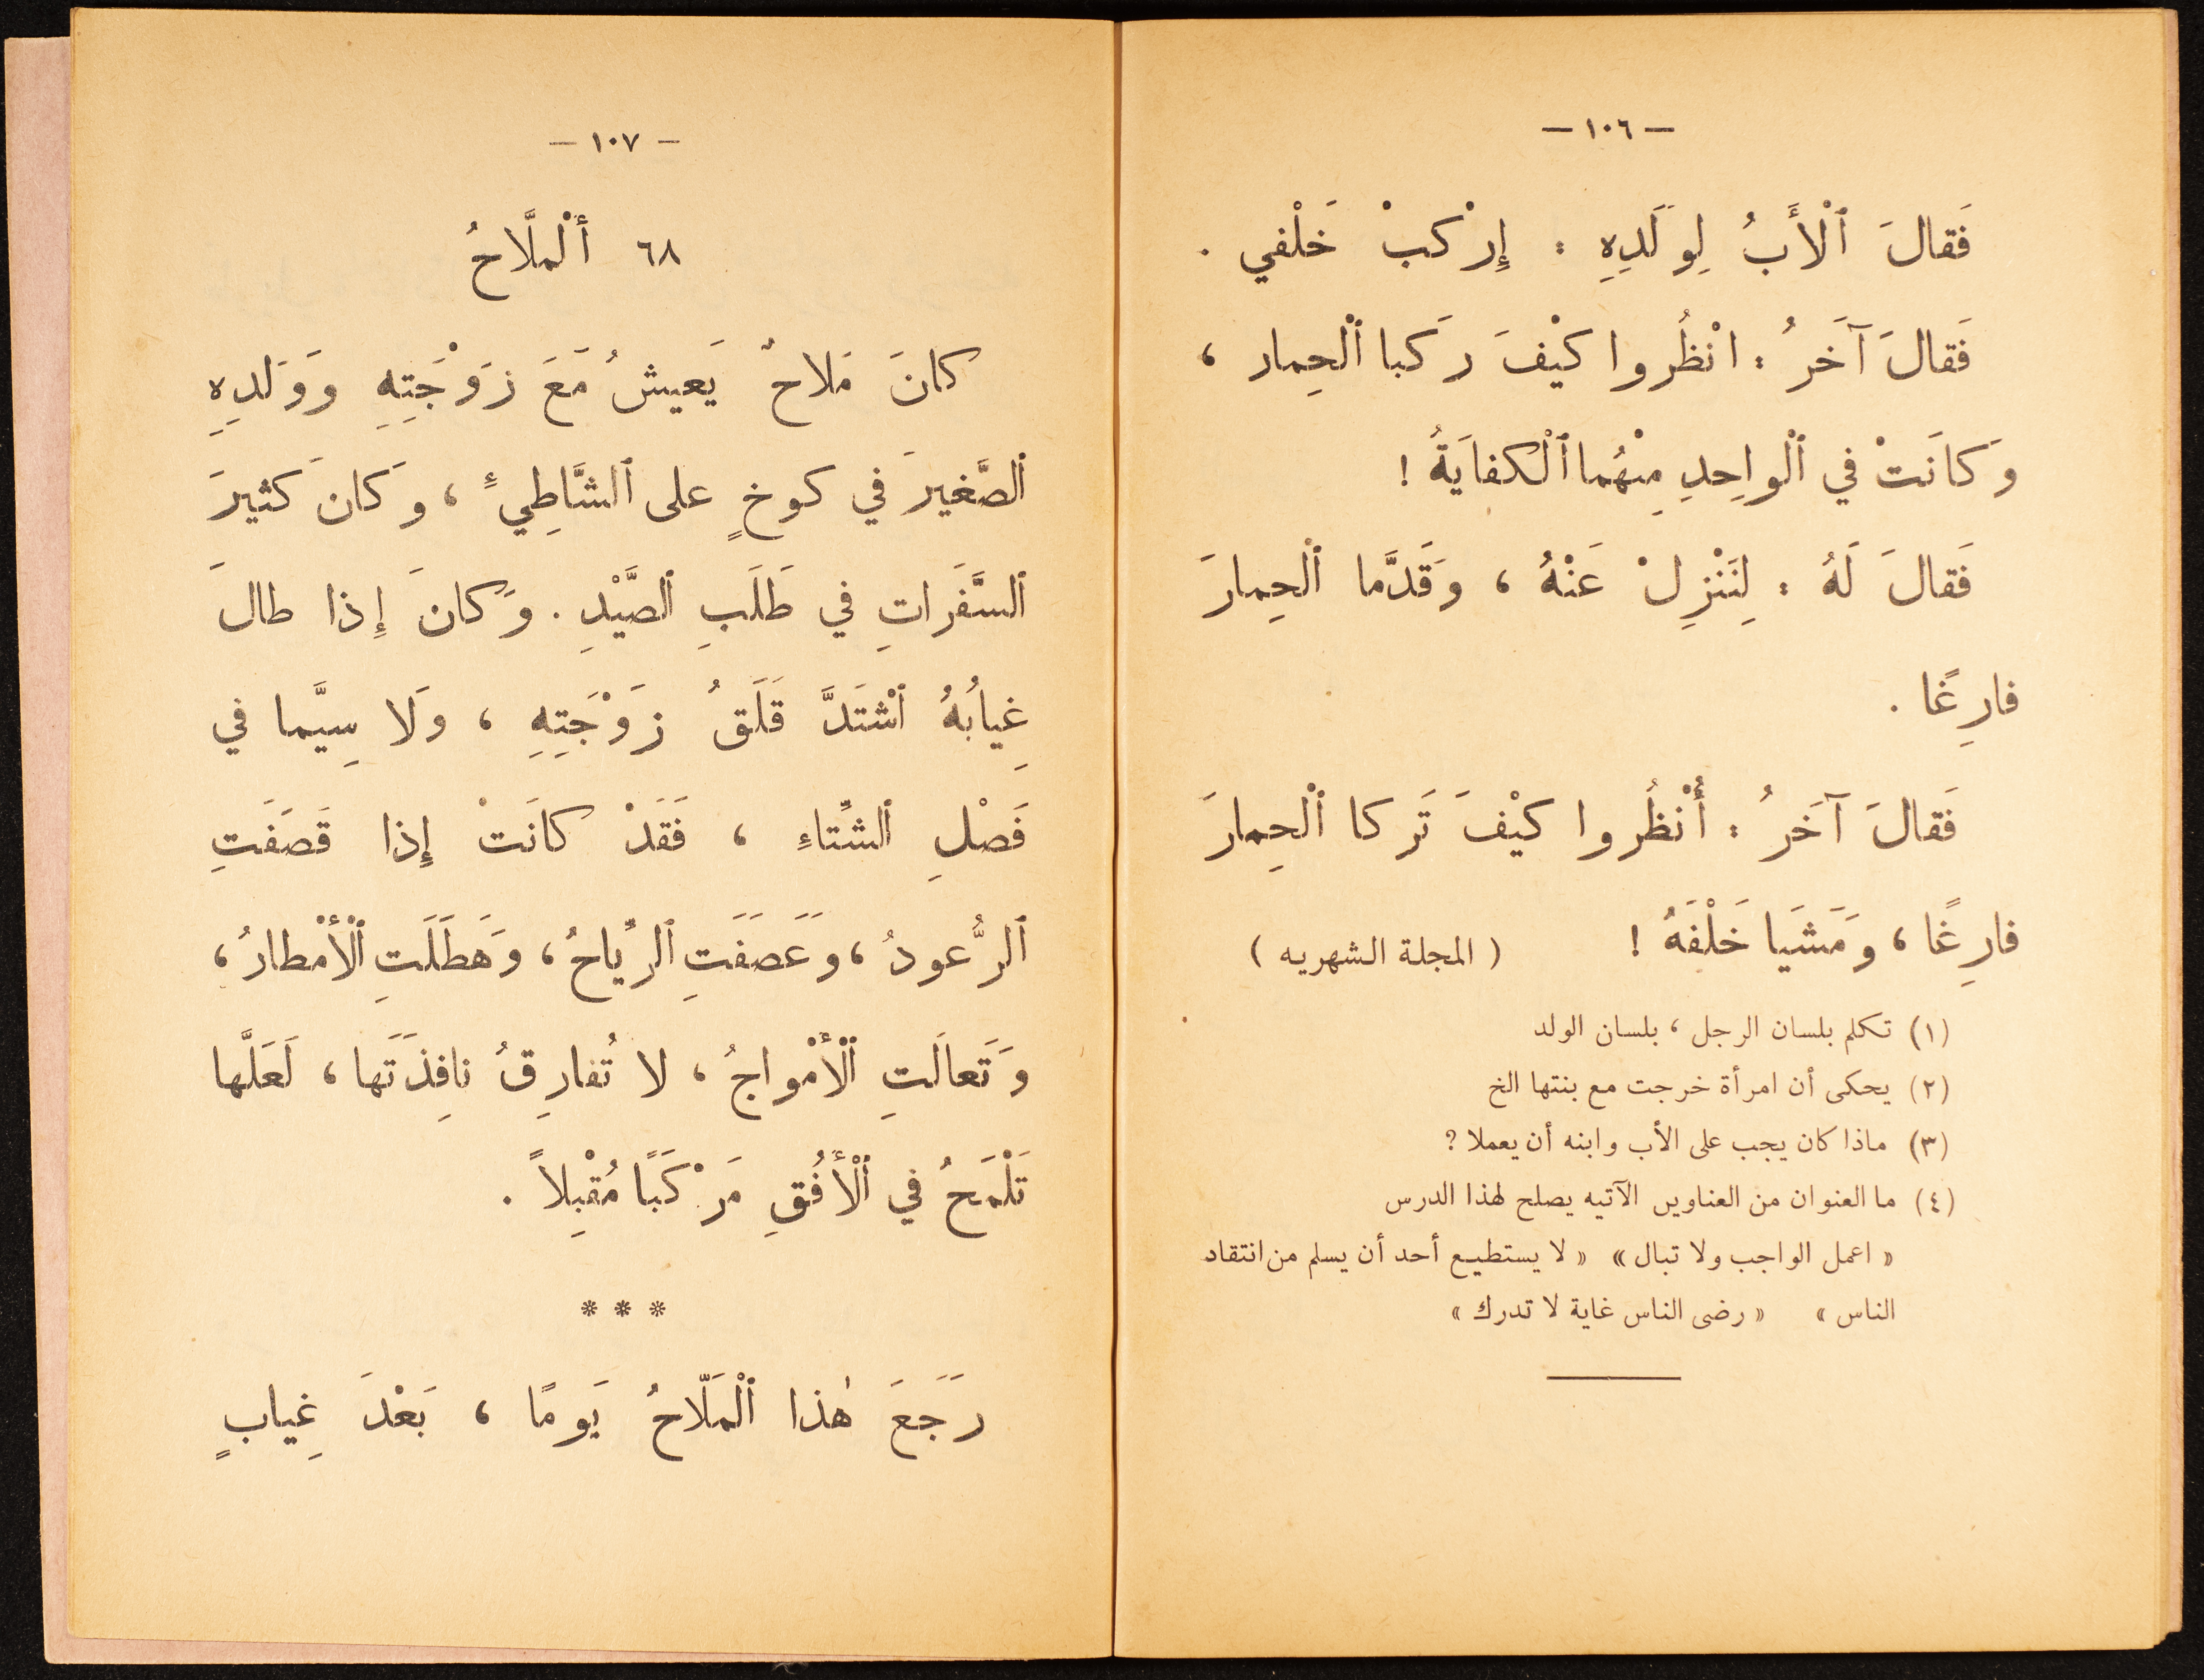 — ١٠٦ —
فَقالَ ٱلْأَبُ لِوَلَدِهِ : إِرْكبْ خَلْفي .
فَقالَ آخَرُ : انْظُروا كيْفَ رَكبا ٱلْحِمار ،
وَكانَتْ في ٱلْواحِدِ مِنْهُما ٱلْكفايَةُ !
فَقالَ لَهُ : لِنَنْزِلْ عَنْهُ ، وَقَدَّما ٱلْحِمارَ
فارِغًا .
فَقالَ آخَرُ : أُنْظُروا كيْفَ تَركا ٱلْحِمارَ
فارِغًا ، وَمَشَيا خَلْفَهُ ! ( المجلة الشهريه )
(١) تكلم بلسان الرجل ، بلسان الولد
(٢) يحكى أن امرأة خرجت مع بنتها الخ
(٣) ماذا كان يجب على الأب وابنه أن يعملا ؟
(٤) ما العنوان من العناوين الآتيه يصلح لهذا الدرس
« اعمل الواجب ولا تبال » « لا يستطيع أحد أن يسلم من انتقاد
الناس » « رضى الناس غاية لا تدرك »
— ١٠٧ —
٦٨ أَلْملَّاحُ
كانَ مَلاحٌ يَعيشُ مَعَ زَوْجَتِهِ وَوَلَدِهِ
ٱلصَّغيرَ في كوخٍ على ٱلشَّاطِيءٍ ، وَكانَ كثيرَ
ٱلسَّفَراتِ في طَلَبِ ٱلصَّيْدِ . وَكانَ إِذا طالَ
غِيابُهُ ٱشْتَدَّ قَلَقُ زَوْجَتِهِ ، وَلا سِيَّما في
فَصْلِ ٱلشِّتاءِ ، فَقَدْ كانَتْ إِذا قَصَفَتِ
ٱلرُّعودُ ، وَعَصَفَتِ ٱلرِّياحُ ، وَهَطَلَتِ ٱلْأَمْطارُ ،
وَتَعالَتِ ٱلْأَمْواجُ ، لا تُفارِقُ نافِذَتَها ، لَعَلَّها
تَلْمَحُ في ٱلْأُفُقِ مَرْكَبًا مُقْبِلاً .
* * *
رَجَعَ هٰذا ٱلْمَلّاحُ يَومًا ، بَعْدَ غِيابٍ